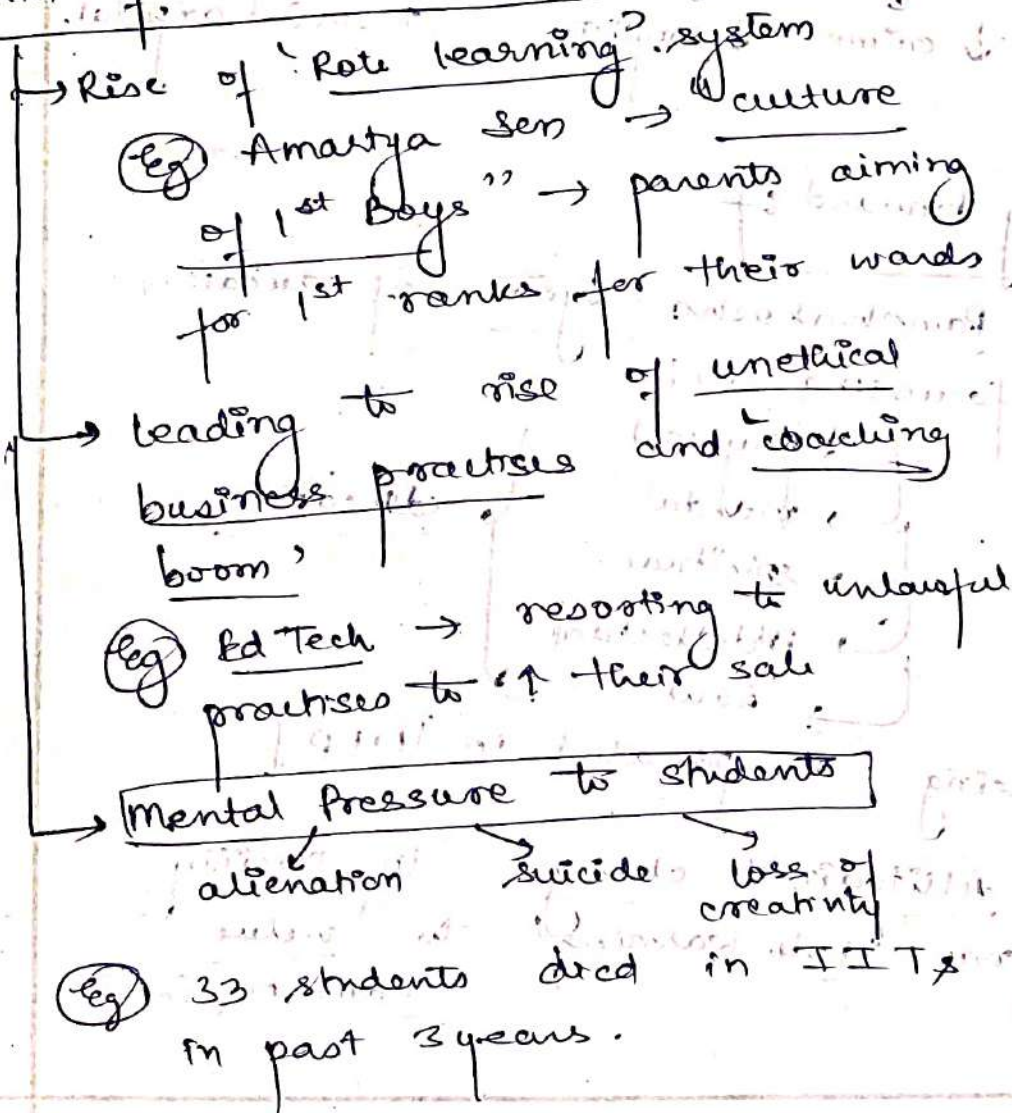 → Rise of 'Rote learning' system
Eg Amartya Sen → "culture
of 1st Boys" → parents aiming
for 1st ranks for their wards
→ leading to rise of unethical
business practises and 'coaching
boom'
Eg Ed Tech → resorting to unlawful
practises to ↑ their sale
→ Mental Pressure to students
alienation suicide loss of
creativity
Eg 33 students died in IITs
in past 3 years.